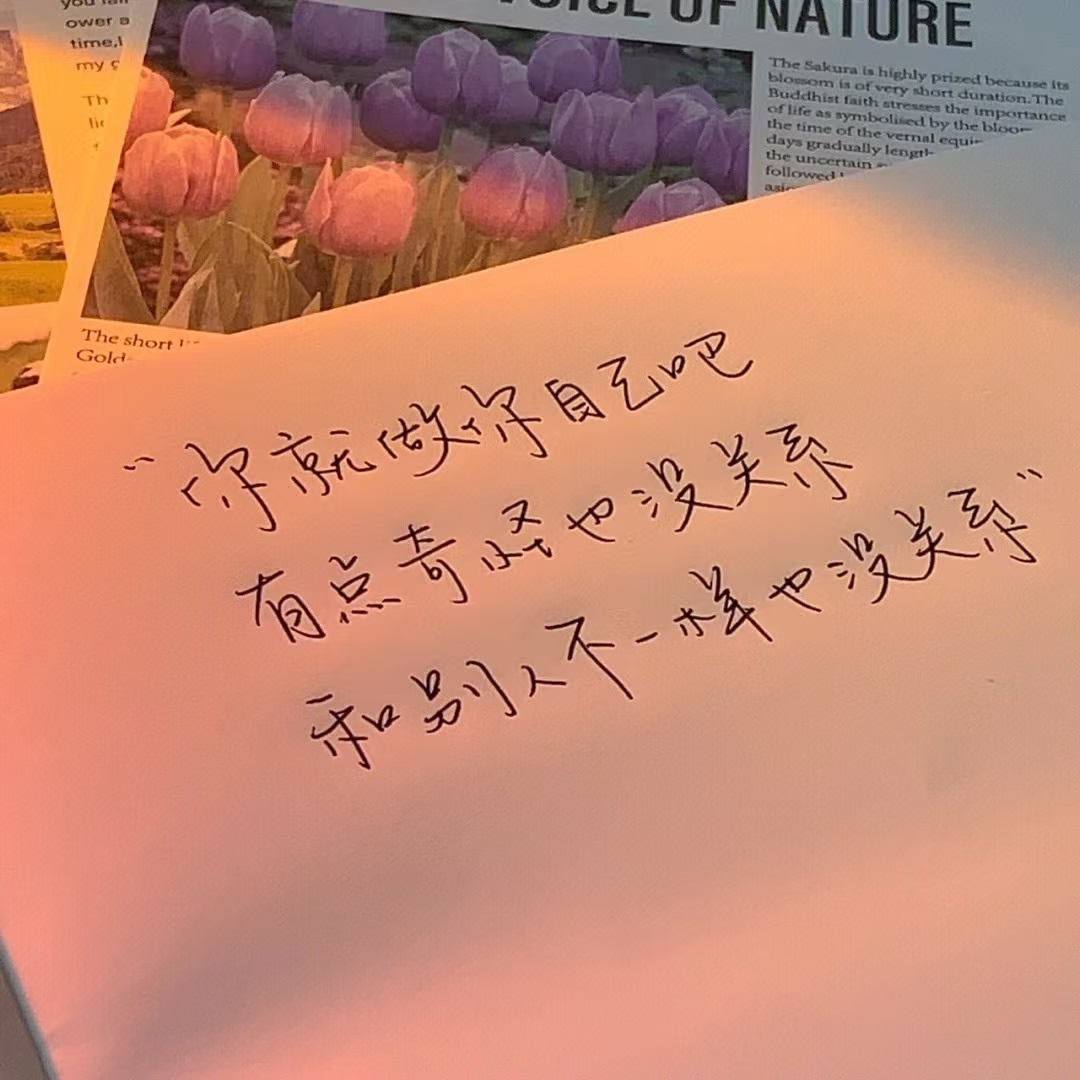 you fall
ower a
time,I
my
Th
VOICE OF NATURE
The Sakura is highly prized because its
blossom is of very short duration.The
Buddhist faith stresses the importance
of life as symbolised by the
the time of the vernal
days gradually
the uncertain
followed
The short
“你就做你自己吧
有点奇怪也没关系
和别人不一样也没关系”